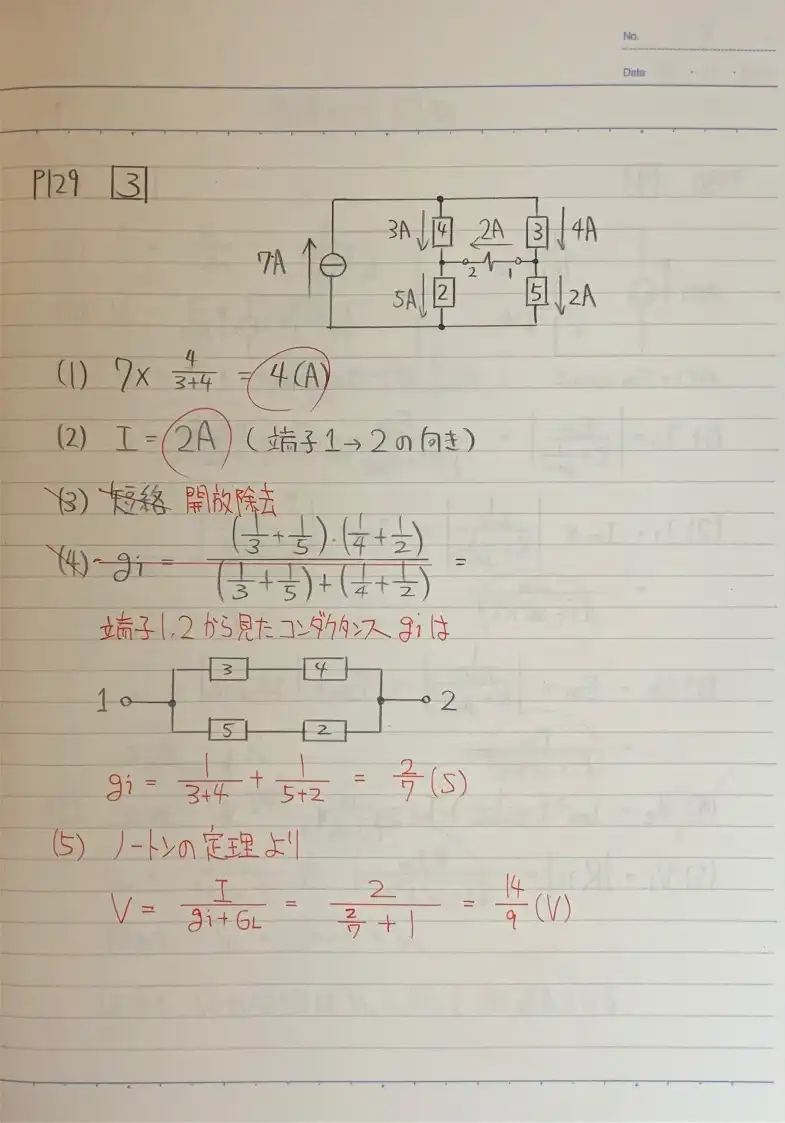 No.
Date
P129 3
3A 4 2A 3 4A
7A
2 1
5A 2 5 2A
(1) 7× 4/(3+4) = 4(A)
(2) I = 2A (端子1→2の向き)
(3) 短絡 開放除去
(4) gi = ((1/3 + 1/5)・(1/4 + 1/2)) / ((1/3 + 1/5) + (1/4 + 1/2)) =
端子1,2から見たコンダクタンスgiは
3 4
1 2
5 2
gi = 1/(3+4) + 1/(5+2) = 2/7 (S)
(5) ノートンの定理より
V = I/(gi+GL) = 2/(2/7 + 1) = 14/9 (V)